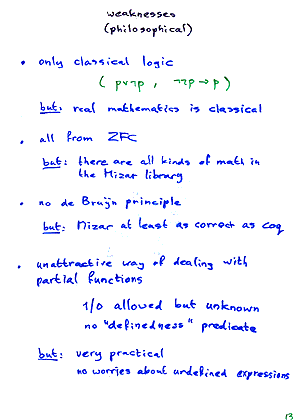 weaknesses
(philosophical)
• only classical logic
( p∨¬p , ¬¬p → p )
but: real mathematics is classical
• all from ZFC
but: there are all kinds of math in
the Mizar library
• no de Bruijn principle
but: Mizar at least as correct as Coq
• unattractive way of dealing with
partial functions
1/0 allowed but unknown
no "definedness" predicate
but: very practical
no worries about undefined expressions
13